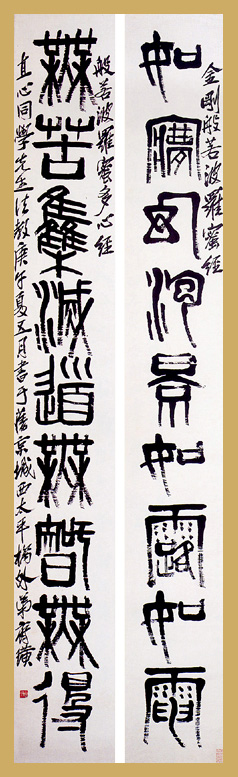 如夢幻泡景如露如電
金剛般若波羅蜜經
無苦集滅道無智無得
般若波羅蜜多心經
直心同學先生法教庚午夏五月書于舊京城西太平橋外弟齊璜